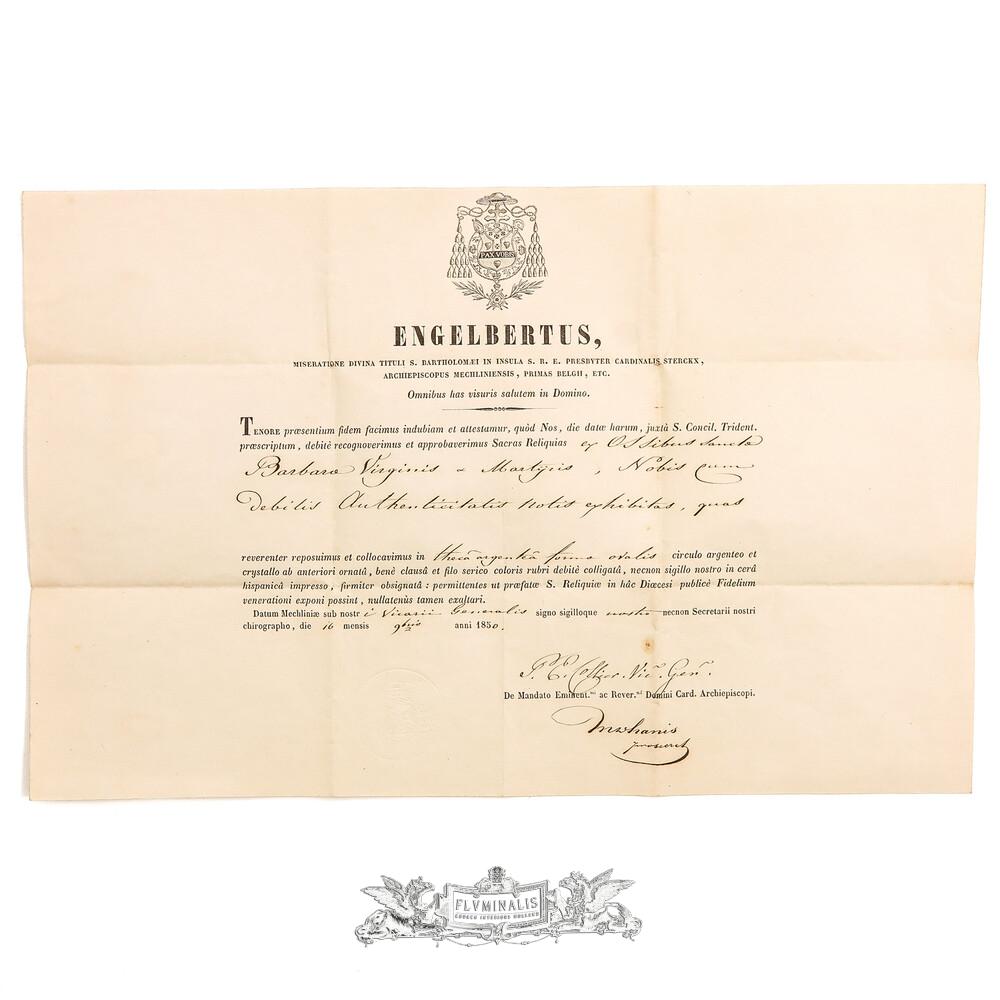 PAX VOBIS
ENGELBERTUS,
MISERATIONE DIVINA TITULI S. BARTHOLOMÆI IN INSULA S. R. E. PRESBYTER CARDINALIS STERCKX,
ARCHIEPISCOPUS MECHLINIENSIS, PRIMAS BELGII, ETC.
Omnibus has visuris salutem in Domino.
TENORE præsentium fidem facimus indubiam et attestamur, quòd Nos, die datæ harum, juxtà S. Concil. Trident.
præscriptum, debitè recognoverimus et approbaverimus Sacras Reliquias ex Ossibus Sanctæ
Barbaræ Virginis & Martyris, Nobis cum
debitis Authenticitatis notis exhibitas, quas
reverenter reposuimus et collocavimus in thecâ argenteâ formæ ovalis circulo argenteo et
crystallo ab anteriori ornatâ, benè clausâ et filo serico coloris rubri debitè colligatâ, necnon sigillo nostro in cerâ
hispanicâ impresso, firmiter obsignatâ: permittentes ut præfatæ S. Reliquiæ in hâc Diœcesi publicè Fidelium
venerationi exponi possint, nullatenùs tamen exaltari.
Datum Mechliniæ sub nostri Vicarii Generalis signo sigilloque nostro necnon Secretarii nostri
chirographo, die 16 mensis 9bris anni 1850.
P. C. Vic. Gen.
De Mandato Eminent.mi ac Rever.mi Domini Card. Archiepiscopi.
prosecret
FLVMINALIS